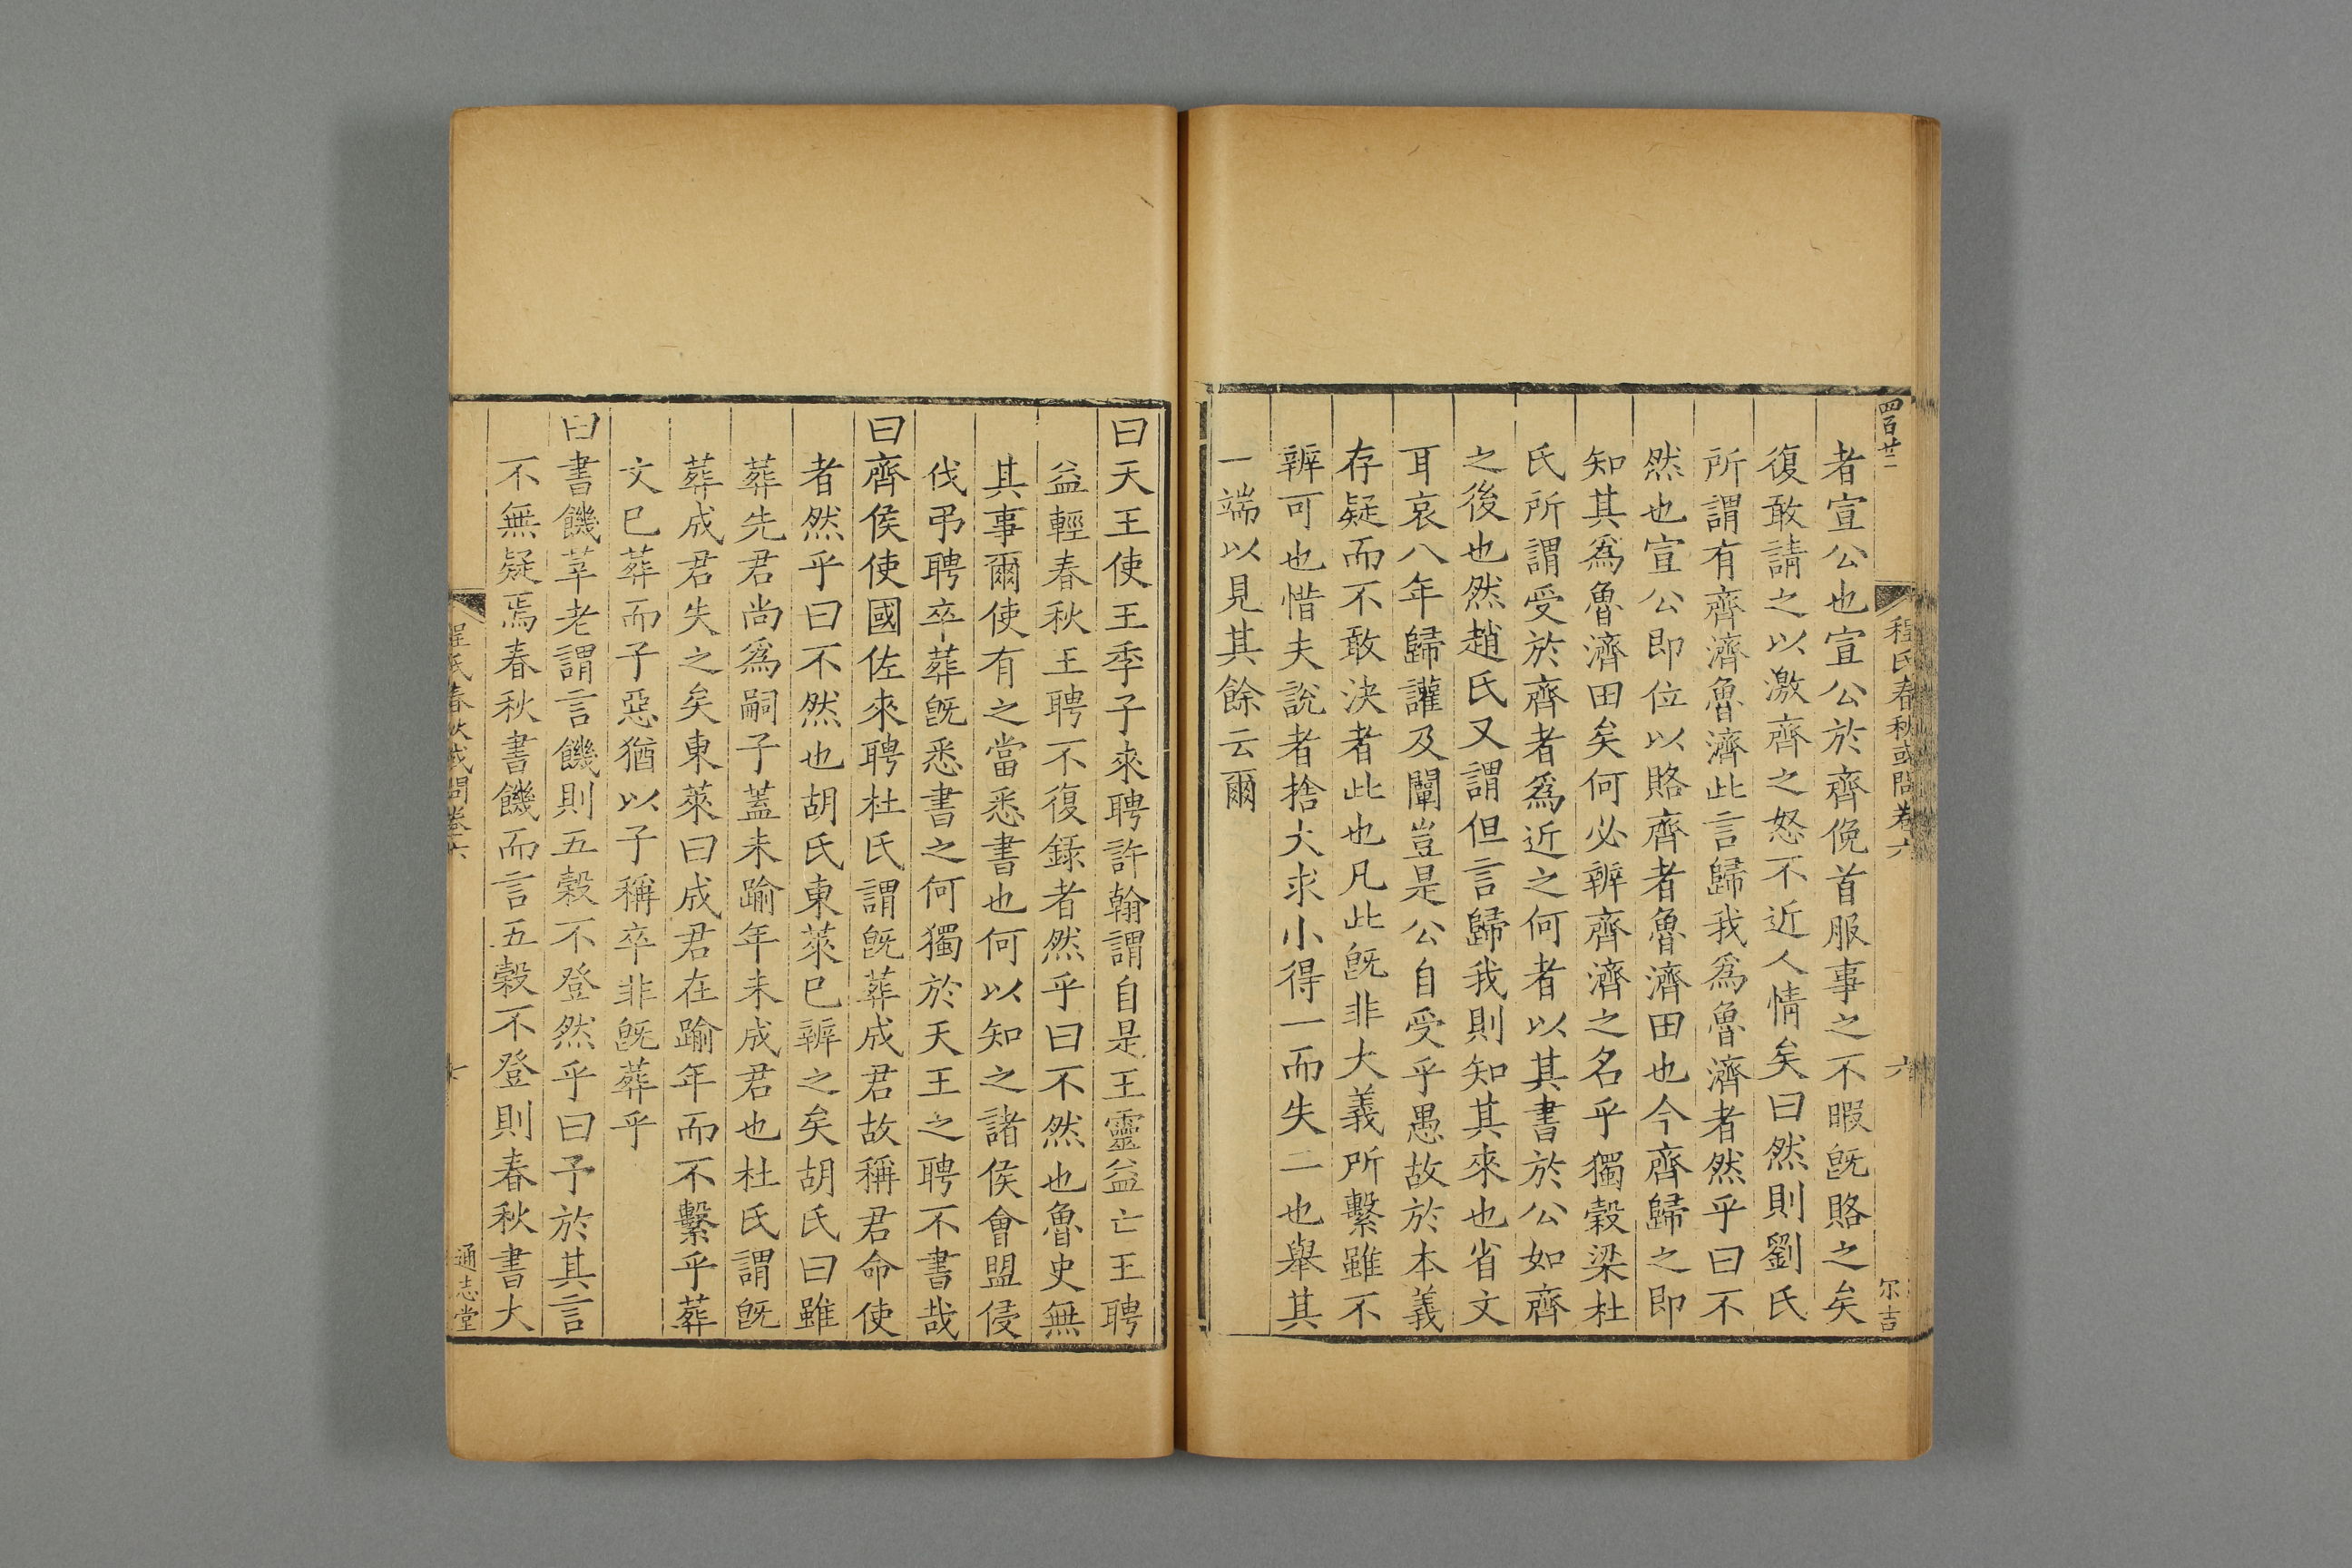 四百廿二
程氏春秋或問卷六
六
尔吉
者宣公也宣公於齊俛首服事之不暇旣賂之矣
復敢請之以激齊之怒不近人情矣曰然則劉氏
所謂有齊濟魯濟此言歸我爲魯濟者然乎曰不
然也宣公即位以賂齊者魯濟田也今齊歸之即
知其爲魯濟田矣何必辨齊濟之名乎獨穀梁杜
氏所謂受於齊者爲近之何者以其書於公如齊
之後也然趙氏又謂但言歸我則知其來也省文
耳哀八年歸讙及闡豈是公自受乎愚故於本義
存疑而不敢決者此也凡此旣非大義所繫雖不
辨可也惜夫說者捨大求小得一而失二也舉其
一端以見其餘云爾
曰天王使王季子來聘許翰謂自是王靈益亡王聘
益輕春秋王聘不復錄者然乎曰不然也魯史無
其事爾使有之當悉書也何以知之諸侯會盟侵
伐弔聘卒葬旣悉書之何獨於天王之聘不書哉
曰齊侯使國佐來聘杜氏謂旣葬成君故稱君命使
者然乎曰不然也胡氏東萊巳辨之矣胡氏曰雖
葬先君尚爲嗣子蓋未踰年未成君也杜氏謂旣
葬成君失之矣東萊曰成君在踰年而不繫乎葬
文巳葬而子惡猶以子稱卒非旣葬乎
曰書饑莘老謂言饑則五穀不登然乎曰予於其言
不無疑焉春秋書饑而言五穀不登則春秋書大
程氏春秋或問卷六
通志堂